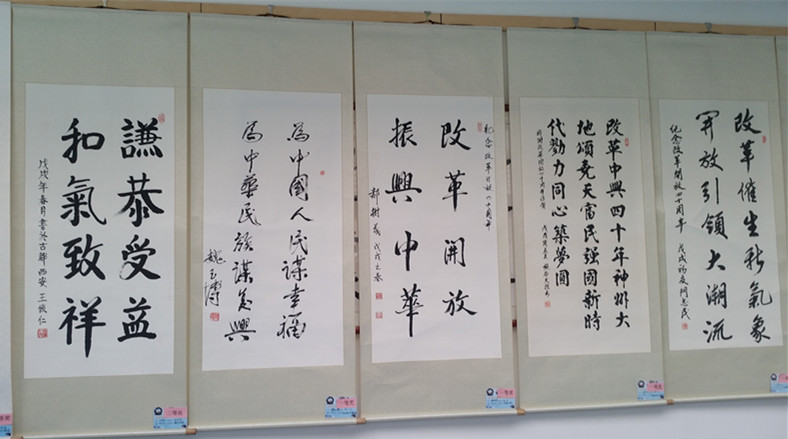 謙恭受益
和氣致祥
戊戌年春月書於古都西安 王
為中國人民謀幸福
為中華民族謀复興
紀念改革开放四十周年
改革開放
振興中華
戊戌之春
改革中興四十年神州大
地頌堯天富民强國新時
代勠力同心築夢圓
改革催生新氣象
开放引領大潮流
纪念改革開放四十周年 戊戌初夏